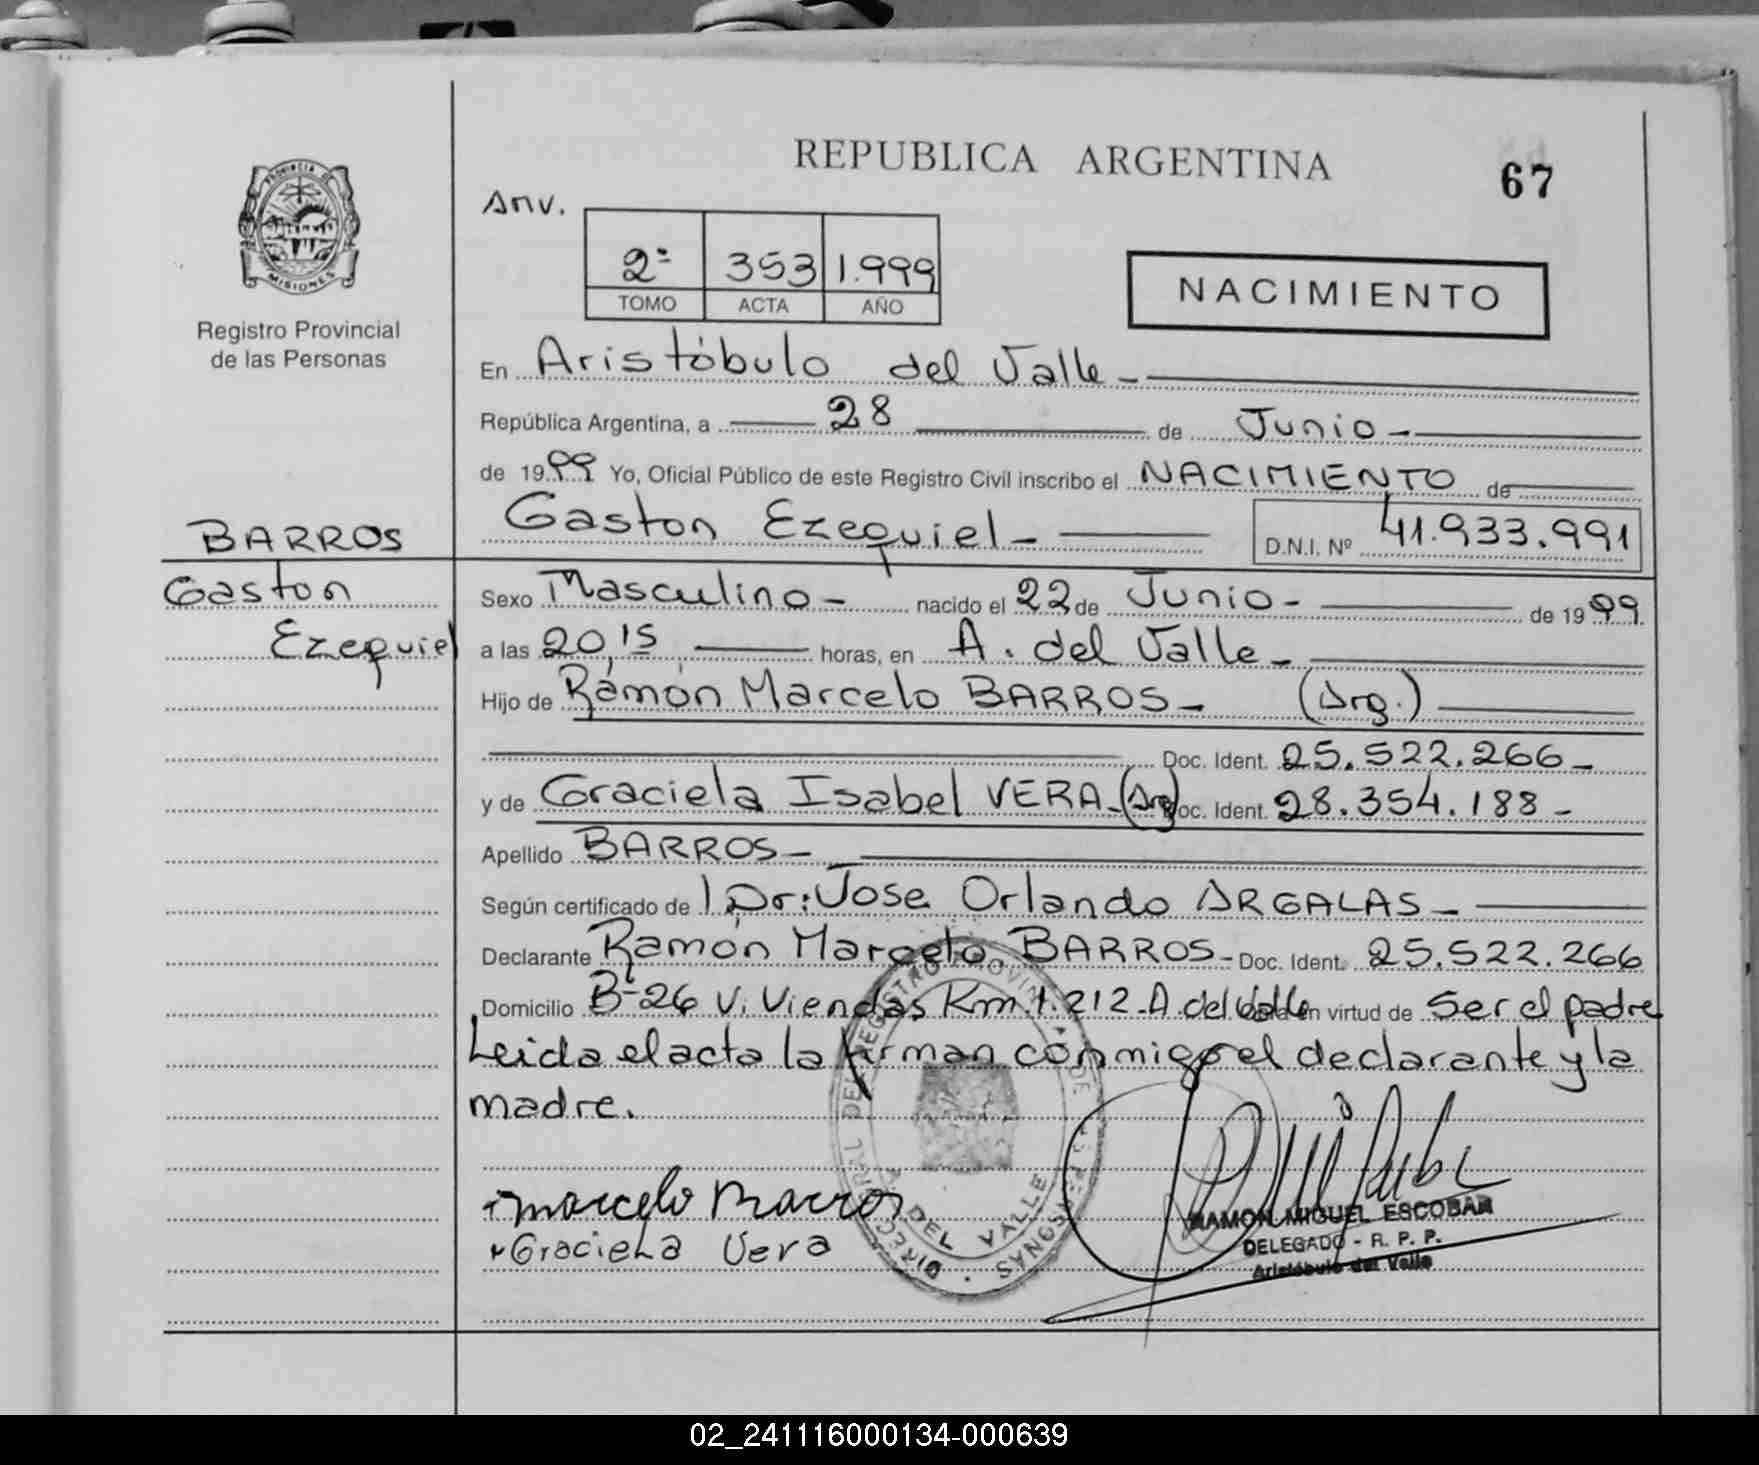 REPUBLICA ARGENTINA
67
PROVINCIA D
MISIONES
Registro Provincial
de las Personas
Anv.
2º 353 1.999
TOMO ACTA AÑO
NACIMIENTO
En Aristóbulo del Valle -
República Argentina, a 28 de Junio -
de 1999 Yo, Oficial Público de este Registro Civil inscribo el NACIMIENTO de
Gaston Ezequiel - D.N.I. Nº 41.933.991
BARROS
Gaston
Ezequiel
Sexo Masculino - nacido el 22 de Junio - de 1999
a las 20,15 horas, en A. del Valle -
Hijo de Ramón Marcelo BARROS - (Arg.)
Doc. Ident. 25.522.266 -
y de Graciela Isabel VERA - (Arg) Doc. Ident. 28.354.188 -
Apellido BARROS -
Según certificado de Dr: Jose Orlando ARGALAS -
Declarante Ramón Marcelo BARROS - Doc. Ident. 25.522.266
Domicilio B-26 Viviendas Km. 1.212 - A del Valle en virtud de Ser el padre
Leida el acta la firman conmigo el declarante y la
madre.
marcelo Barros
Graciela Vera
DIREC RAL DEL REGISTRO PROVIN DE PERSONAS
A. DEL VALLE
RAMON MIGUEL ESCOBAR
DELEGADO - R. P. P.
Aristóbulo del Valle
02_241116000134-000639